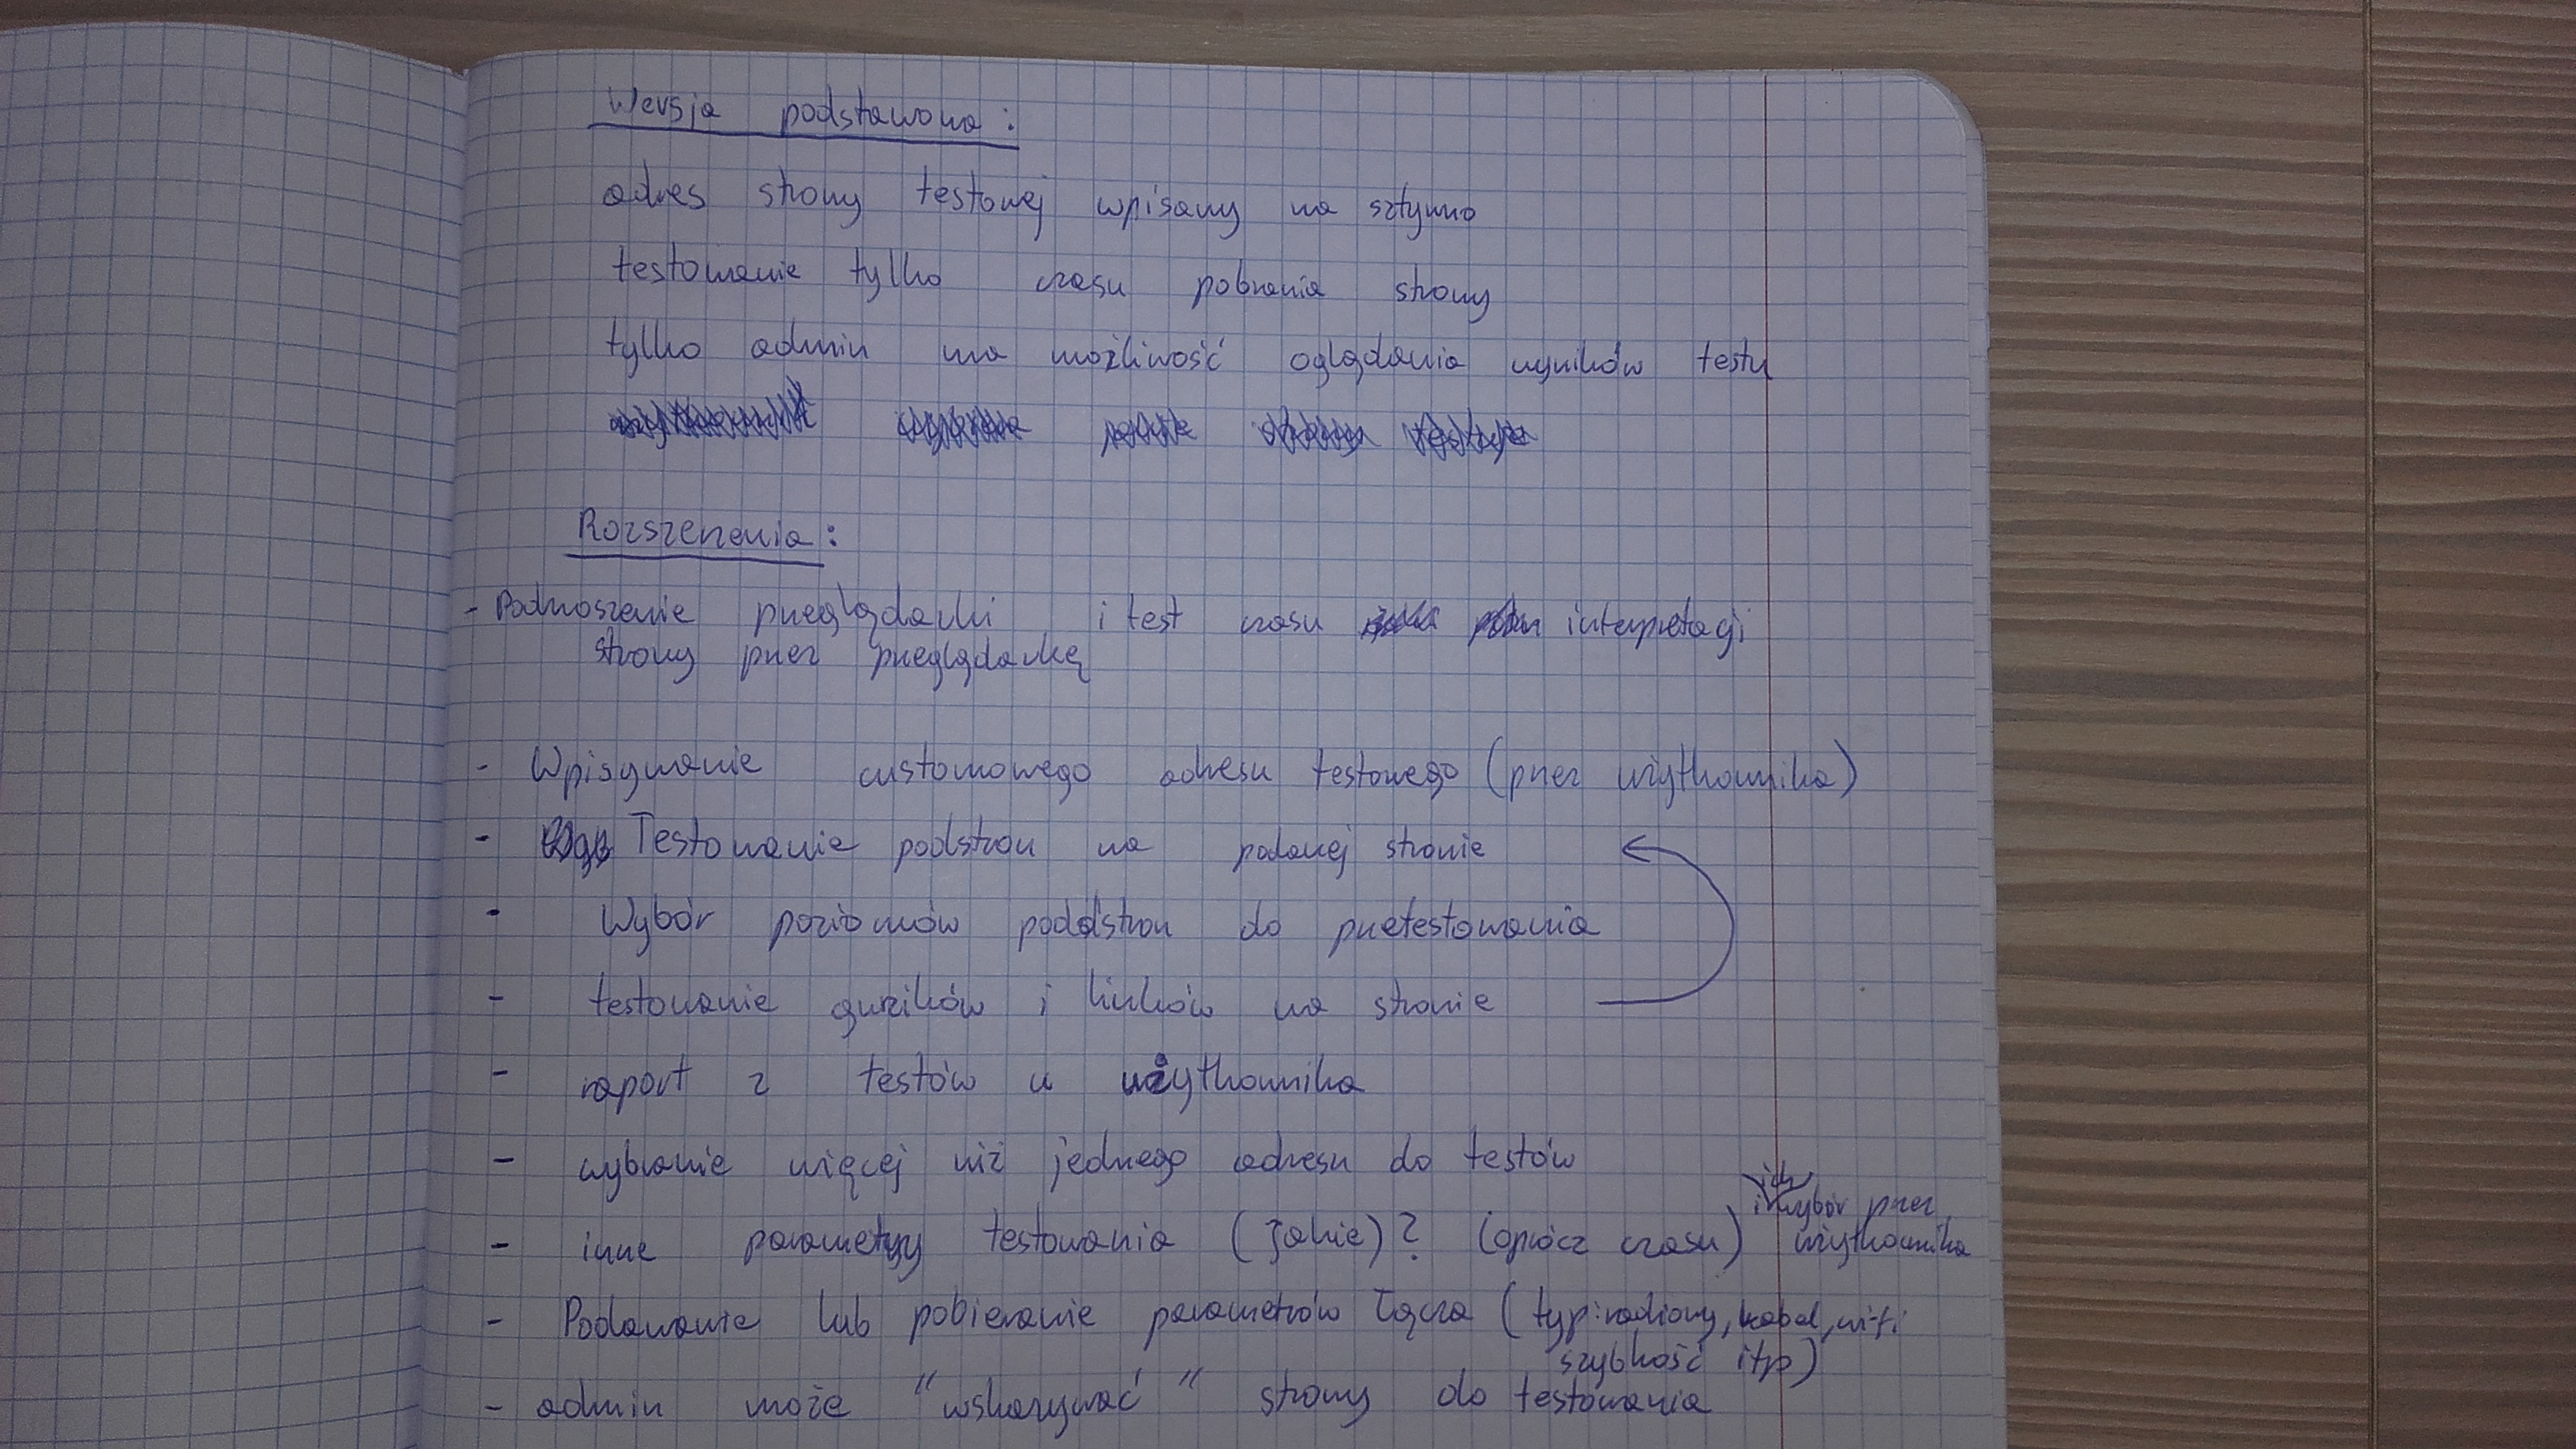 Wersja podstawowa:
adres strony testowej wpisany na sztywno
testowanie tylko czasu pobrania strony
tylko admin ma możliwość oglądania wyników testu
Rozszerzenia:
- Podnoszenie przeglądarki i test czasu interpretacji
strony przez przeglądarkę
- Wpisywanie customowego adresu testowego (przez użytkownika)
- Testowanie podstron na podanej stronie
- Wybór poziomów podstron do przetestowania
- testowanie guzików i linków na stronie
- raport z testów u użytkownika
- wybranie więcej niż jednego adresu do testów
ich
i wybór przez
- inne parametry testowania (jakie)? (oprócz czasu) użytkownika
- Podawanie lub pobieranie parametrów łącza (typ: radiowy, kabel, wi-fi
szybkość itp)
- admin może "wskazywać" strony do testowania